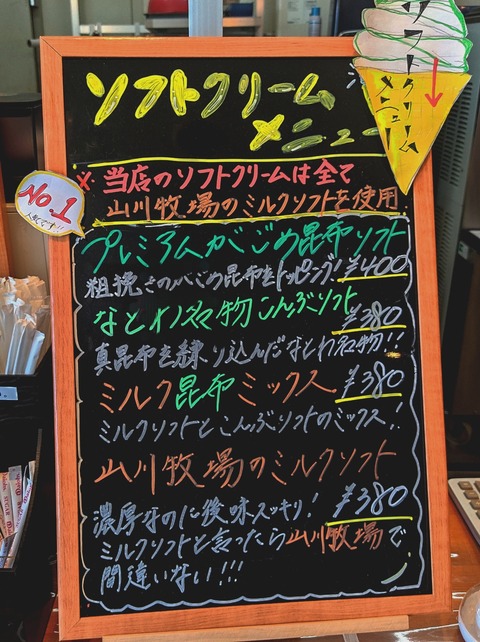 ソフトクリーム
メニュー
ソフトクリーム
メニュー
※ 当店のソフトクリームは全て
山川牧場のミルクソフトを使用
No.1
人気です!!
プレミアムがごめ昆布ソフト
粗挽きのがごめ昆布をトッピング! ¥400
なとわ名物こんぶソフト
¥380
真昆布を練り込んだなとわ名物!!
ミルク昆布ミックス ¥380
ミルクソフトとこんぶソフトのミックス!
山川牧場のミルクソフト
¥380
濃厚なのに後味スッキリ!
ミルクソフトと言ったら山川牧場で
間違いない!!!